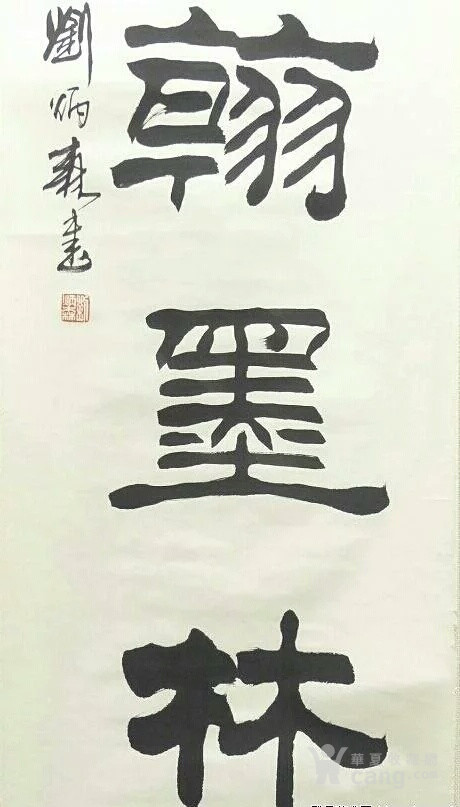 翰墨林
劉炳森書
華夏收藏網
cang.com